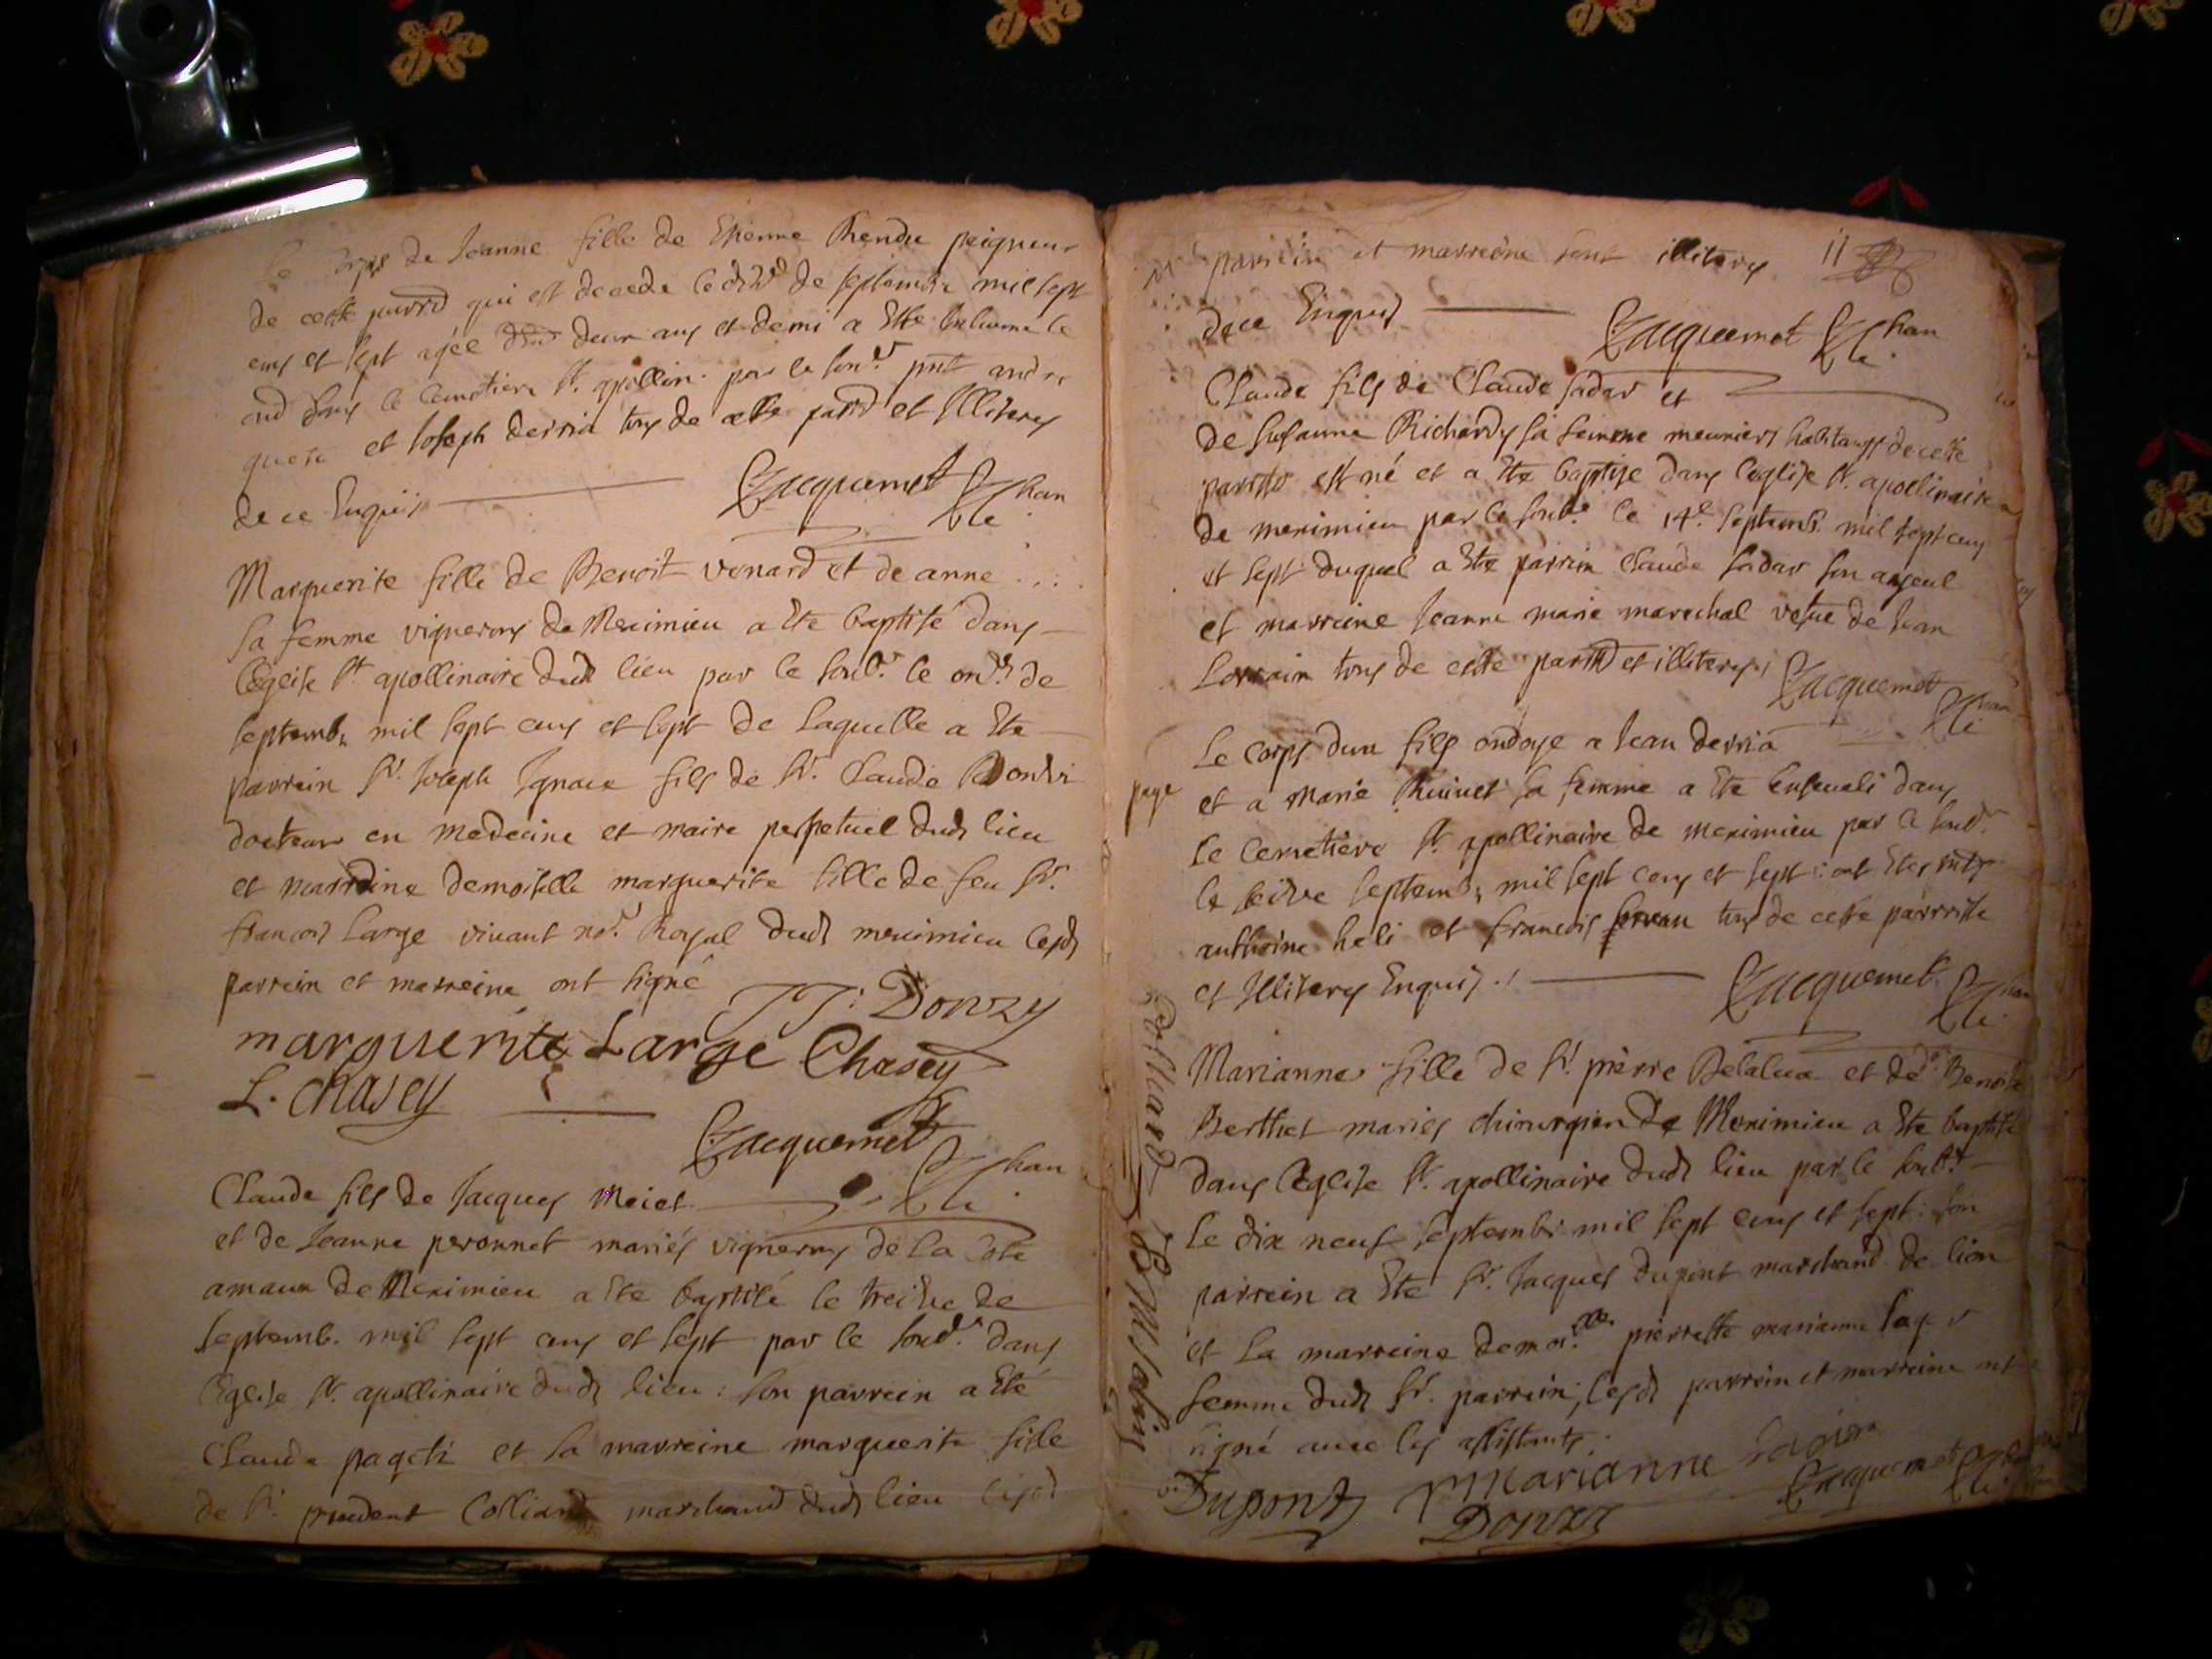 Le corps de Jeanne fille de Etienne Rendu peigneur
de cette parroi qui est decede le de septembre mil sept
cens et sept agée deux ans et demi a Ete Inhume le
dans le cemetiere St. apollin. par le sous.é pnt
et Joseph derria tous de cette parro et Illiteres
de ce Enquis
Jacquemet chan
Marguerite fille de Benoit venard et de anne . . .
sa femme vignerons de Meximieu a Ete baptisé dans
l'eglise St. apollinaire dud lieu par le sous.é le de
septemb. mil sept cens et sept de laquelle a Ete
parrein Sr. Joseph Ignace fils de Sr. Claude Donzi
docteur en medecine et maire perpetuel dud lieu
et marreine demoiselle marguerite fille de feu Sr.
francois Large vivant no.e Royal dud meximieu lesd
parrein et marreine ont signé
J J: Donzy
marguerite Large Chasey
L. chasey
Jacquemet
chan
Claude fils de Jacques Meiet
et de Jeanne peronnet mariés vignerons de la Cote
amaux de Meximieu a Ete baptisé le treize de
septemb. mil sept cens et sept par le sous.é dans
l'Eglise St. apollinaire dud lieu : son parrein a Eté
Claude pageti et sa marreine marguerite fille
de Sr. prudent Colliard marchand dud lieu lesd
parrein et marreine sont illiteres 11
de ce Enquis
Jacquemet chan
Claude fils de Claude sadar et
de susanne Richard sa femme meuniers habitants de cette
parroise est né et a Ete baptise dans l'eglise St. apollinaire
de meximieu par le sous.é le 14.e septemb. mil sept cens
et sept duquel a Ete parrein Claude sadar son ayeul
et marreine Jeanne marie marechal vefue de Jean
Lorrain tous de cette parroi et illiteres
Jacquemet chan
Le corps dun fils ondoye a Jean derria
page et a Marie Ruivet sa femme a Ete enseueli dans
le cemetiere St. apollinaire de meximieu par le sous.é
le seize septemb. mil sept cens et sept : ont Etes
anthoine heli et francois tous de cette parroisse
et Illiteres Enquis .
Jacquemet chan
Marianne fille de Sr. pierre Belalua et de d.e Benoite
Berthet mariés chirurgien de Meximieu a Ete baptisé
dans l'Eglise St. apollinaire dud lieu par le sous.é
le dix neuf septemb. mil sept cens et sept : son
parrein a Ete Sr. Jacques dupont marchand de lion
et la marreine demoi.lle pierrette marianne
femme dud Sr. parrein; lesd parrein et marreine ont
signé auec les assistants.
Dupont marianne
Donzy
Jacquemet
Colliard